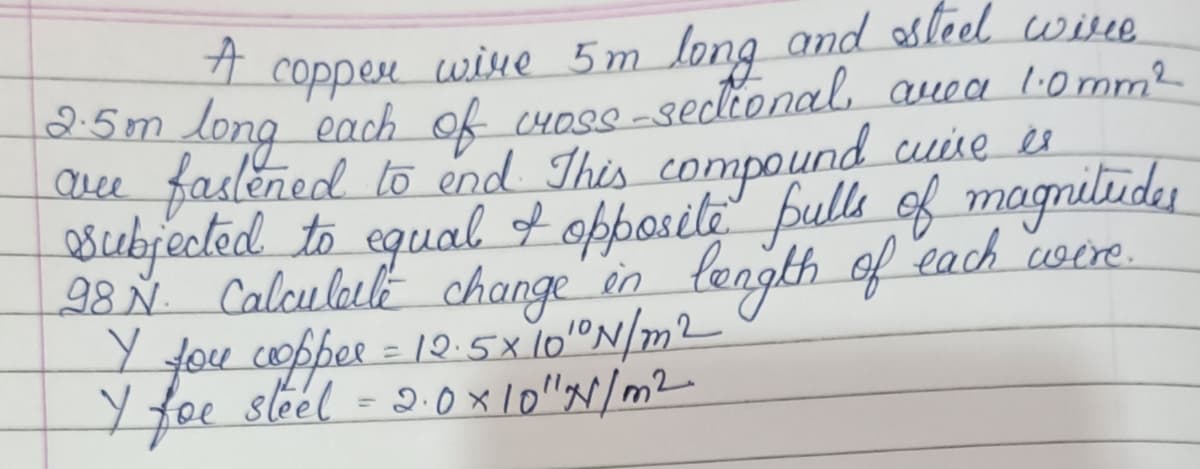 A copper wire 5m long and steel wire
2.5m long each of cross-sectional area 1.0mm²
are fastened to end. This compound wire is
subjected to equal & opposite pulls of magnitudes
98 N. Calculate change in length of each wire.
Y for copper = 12.5×10¹⁰N/m²
Y for steel = 2.0×10¹¹N/m²